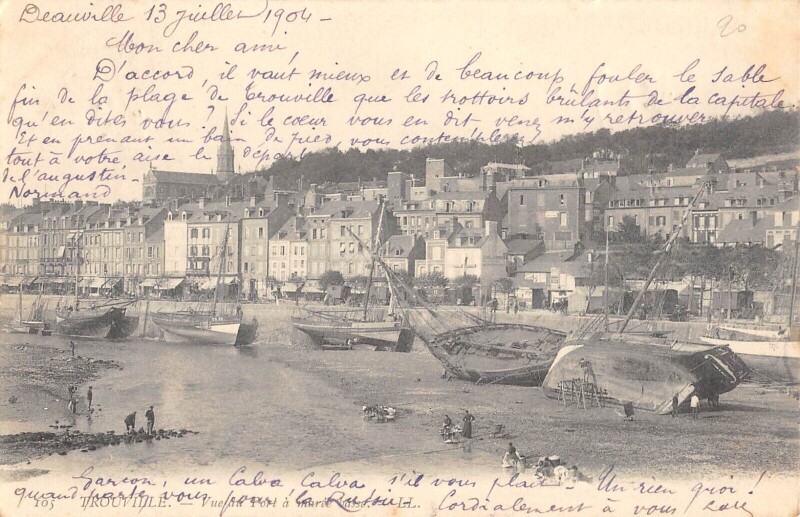 Deauville 13 Juillet 1904 -
20
Mon cher ami,
D'accord, il vaut mieux et de beaucoup fouler le sable
fin de la plage de Trouville que les trottoirs brûlants de la capitale.
qu'en dites vous? Si le cœur vous en dit venez m'y retrouver
Et en prenant un bain de pied vous contemplerez
tout à votre aise le départ
de l'augustin-
Normand
Garçon, un Calva Calva s'il vous plait - Un rien quoi!
105 TROUVILLE. - Vue du Port à marée basse. - LL.
quand partez vous pour la
Cordialement à vous